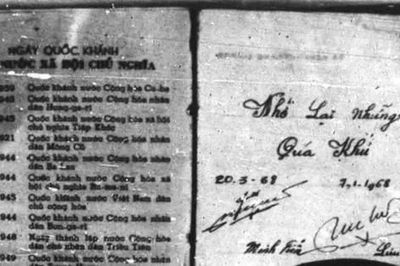 NGÀY QUỐC KHÁNH
NƯỚC XÃ HỘI CHỦ NGHĨA
959 Quốc khánh nước Cộng hòa Cu-ba
945 Quốc khánh nước Cộng hòa nhân
dân Hung-ga-ri
945 Quốc khánh nước Cộng hòa xã hội
chủ nghĩa Tiệp Khắc
921 Quốc khánh nước Cộng hòa nhân
dân Mông Cổ
944 Quốc khánh nước Cộng hòa nhân
dân Ba Lan
944 Quốc khánh nước Cộng hòa xã
hội chủ nghĩa Ru-ma-ni
945 Quốc khánh nước Việt Nam dân
chủ cộng hòa
944 Quốc khánh nước Cộng hòa nhân
dân Bun-ga-ri
948 Ngày thành lập nước Cộng hòa
dân chủ nhân dân Triều Tiên
949 Quốc khánh nước Cộng hòa nhân
Nhớ Lại Những
Qúa Khứ
20.3-68 7.1.1968
Minh Lưu